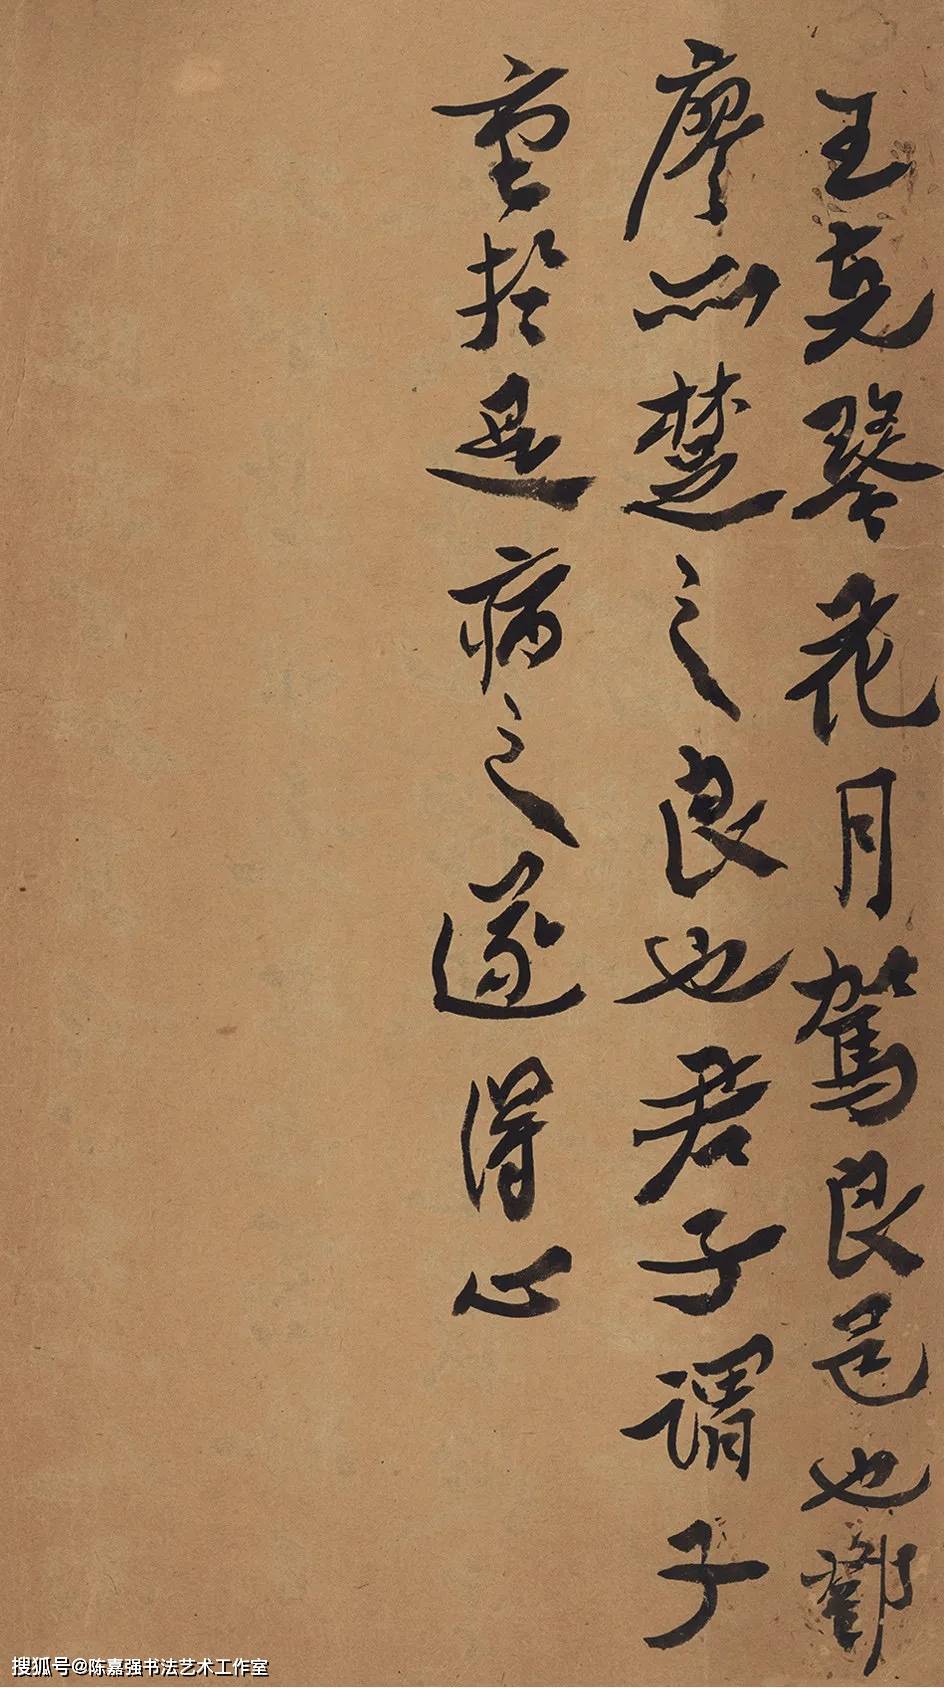 王克琴花月駕良邑也鄧
廖亦楚之良也君子謂子
重於是病之遂得心
搜狐号@陈嘉强书法艺术工作室